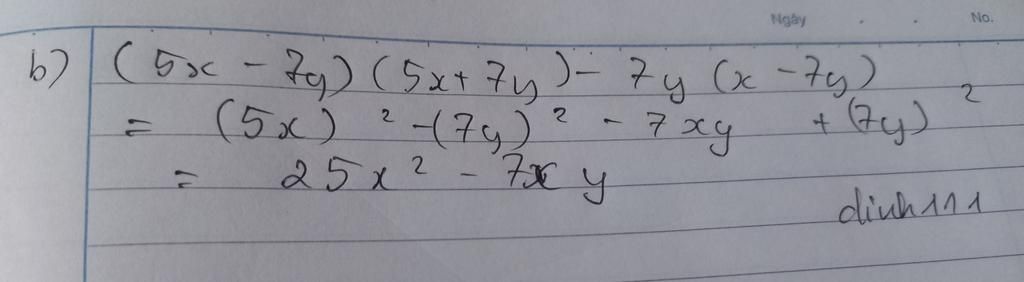 Ngày . . No.
b) (5x - 7y) (5x + 7y) - 7y (x - 7y)
= (5x)² - (7y)² - 7xy + (7y)²
= 25x² - 7xy
dinh111